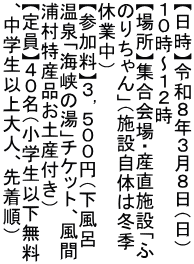 【日時】令和８年３月８日（日）
１０時～１２時
【場所】集合会場・産直施設「ふ
のりちゃん」（施設自体は冬季
休業中）
【参加料】３，５００円（下風呂
温泉「海峡の湯」チケット、風間
浦村特産品お土産付き）
【定員】４０名（小学生以下無料
、中学生以上大人、先着順）